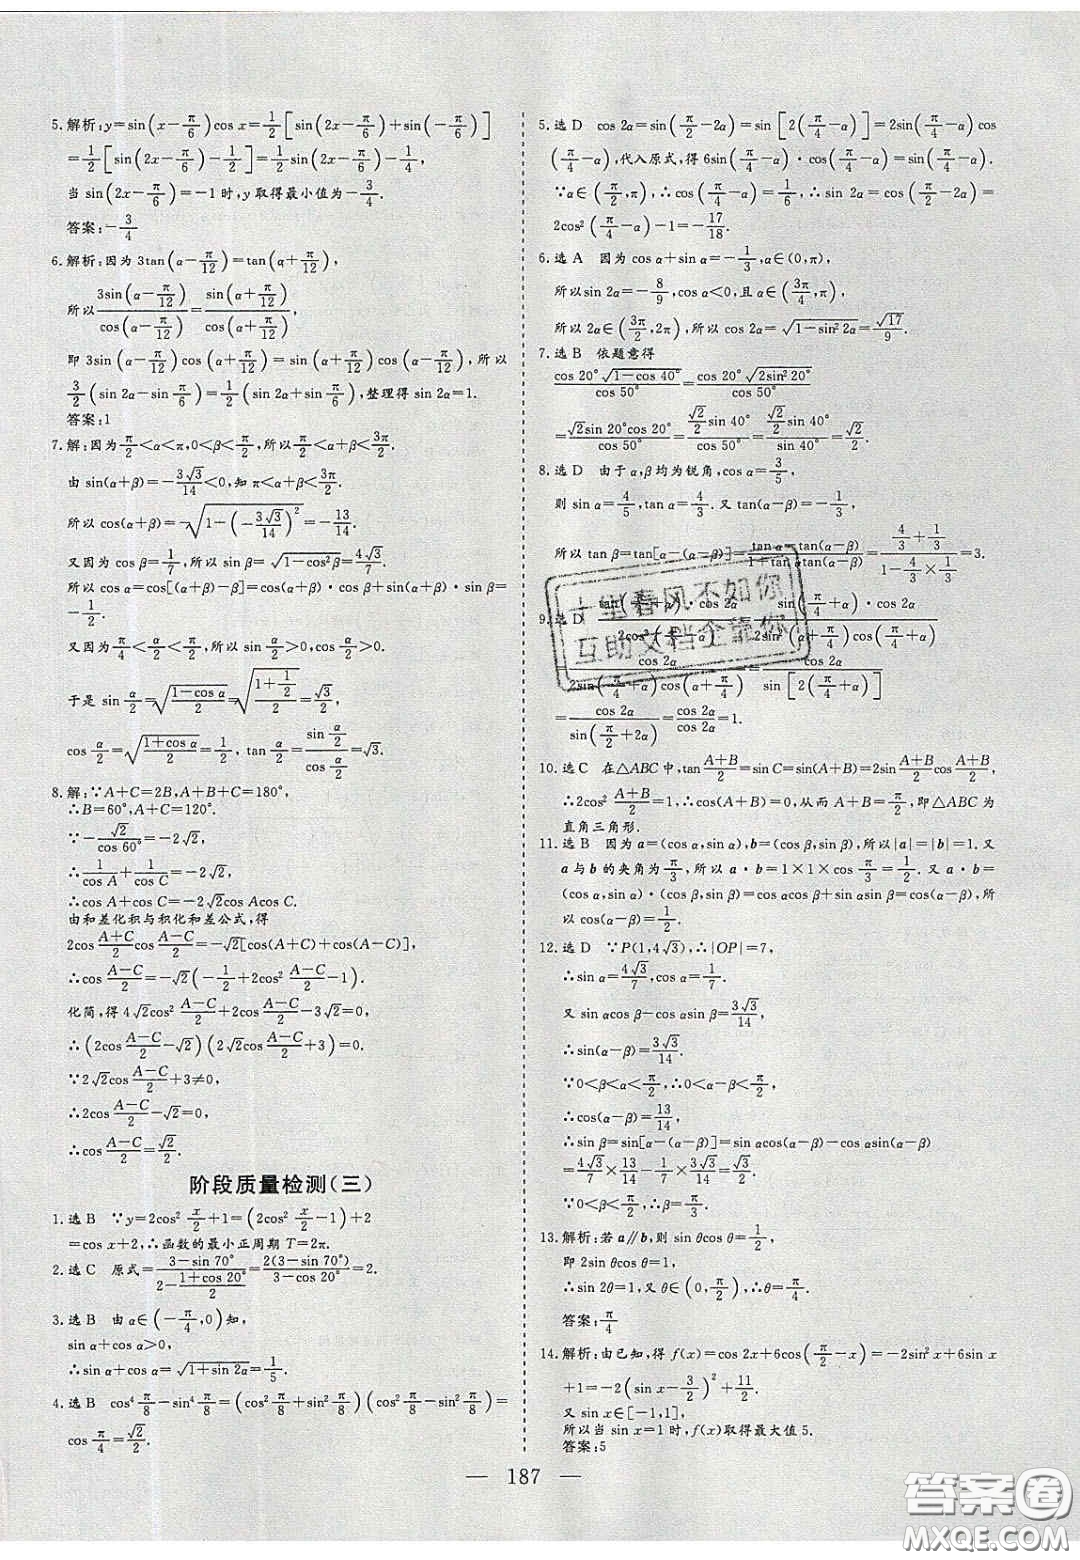 5.解析:y=sin(x-π/6)cos x=1/2[sin(2x-π/6)+sin(-π/6)]
=1/2[sin(2x-π/6)-1/2]=1/2sin(2x-π/6)-1/4,
当 sin(2x-π/6)=-1时,y取得最小值为-3/4.
答案:-3/4
6.解析:因为 3tan(α-π/12)=tan(α+π/12),
所以3sin(α-π/12)/cos(α-π/12)=sin(α+π/12)/cos(α+π/12),
即 3sin(α-π/12)cos(α+π/12)=sin(α+π/12)cos(α-π/12),所以
3/2(sin 2α-sin π/6)=1/2(sin 2α+sin π/6),整理得 sin 2α=1.
答案:1
7.解:因为π/2<α<π,0<β<π/2,所以π/2<α+β<3π/2.
由 sin(α+β)=-3√3/14<0,知 π<α+β<3π/2,
所以 cos(α+β)=-√(1-(-3√3/14)²)=-13/14.
又因为 cos β=1/7,所以 sin β=√(1-cos²β)=4√3/7.
所以 cos α=cos[(α+β)-β]=cos(α+β)·cos β+sin(α+β)·sin β=
-1/2.
又因为π/4<α/2<π/2,所以 sin α/2>0,cos α/2>0.
于是 sin α/2=√((1-cos α)/2)=√((1+1/2)/2)=√3/2,
cos α/2=√((1+cos α)/2)=1/2, tan α/2=(sin α/2)/(cos α/2)=√3.
8.解:∵A+C=2B,A+B+C=180°,
∴B=60°,A+C=120°.
∵-√2/cos 60°=-2√2,
∴1/cos A+1/cos C=-2√2,
∴cos A+cos C=-2√2cos Acos C.
由和差化积与积化和差公式,得
2cos (A+C)/2 cos (A-C)/2=-√2[cos(A+C)+cos(A-C)],
∴cos (A-C)/2=-√2(-1/2+2cos² (A-C)/2-1).
化简,得 4√2cos² (A-C)/2+2cos (A-C)/2-3√2=0,
∴(2cos (A-C)/2-√2)(2√2cos (A-C)/2+3)=0.
∵2√2cos (A-C)/2+3≠0,
∴2cos (A-C)/2-√2=0,
∴cos (A-C)/2=√2/2.
阶段质量检测(三)
1.选 B ∵y=2cos² x/2+1=(2cos² x/2-1)+2
=cos x+2,∴函数的最小正周期 T=2π.
2.选 C 原式=(3-sin 70°)/(2-(1+cos 20°)/2)=2(3-sin 70°)/(3-cos 20°)=2.
3.选 B 由 α∈(-π/4,0)知,
sin α+cos α>0,
∴sin α+cos α=√(1+sin 2α)=1/5.
4.选 B cos⁴ π/8-sin⁴ π/8=(cos² π/8+sin² π/8)(cos² π/8-sin² π/8)=
cos π/4=√2/2.
5.选 D cos 2α=sin(π/2-2α)=sin[2(π/4-α)]=2sin(π/4-α)cos
(π/4-α),代入原式,得 6sin(π/4-α)·cos(π/4-α)=sin(π/4-α).
∵α∈(π/2,π),∴cos(π/4-α)=1/6,∴sin 2α=cos(π/2-2α)=
2cos²(π/4-α)-1=-17/18.
6.选 A 因为 cos α+sin α=-1/3,α∈(0,π),
所以sin 2α=-8/9,cos α<0,且 α∈(3π/4,π),
所以 2α∈(3π/2,2π),所以 cos 2α=√(1-sin² 2α)=√17/9.
7.选 B 依题意得
cos 20°√(1-cos 40°)/cos 50°=cos 20°√(2sin² 20°)/cos 50°
=√2sin 20°cos 20°/cos 50°=(√2/2 sin 40°)/cos 50°=(√2/2 sin 40°)/sin 40°=√2/2.
8.选 D 由于 α,β均为锐角,cos α=3/5,
则 sin α=4/5,tan α=4/3.又 tan(α-β)=-1/3,
所以 tan β=tan[α-(α-β)]=(tan α-tan(α-β))/(1+tan αtan(α-β))=(4/3+1/3)/(1-4/3×1/3)=3.
9.选 D
=cos 2α/(2sin(π/4+α)cos(π/4+α))=cos 2α/sin[2(π/4+α)]
=cos 2α/sin(π/2+2α)=cos 2α/cos 2α=1.
10.选 C 在△ABC 中,tan (A+B)/2=sin C=sin(A+B)=2sin (A+B)/2 cos (A+B)/2,
∴2cos² (A+B)/2=1,∴cos(A+B)=0,从而 A+B=π/2,即△ABC 为
直角三角形.
11.选 B 因为 a=(cos α,sin α),b=(cos β,sin β),所以|a|=|b|=1.又
a 与 b 的夹角为π/3,所以 a·b=1×1×cos π/3=1/2.又 a·b=
(cos α,sin α)·(cos β,sin β)=cos αcos β+sin αsin β=cos(α-β),所
以 cos(α-β)=1/2.
12.选 D ∵P(1,4√3),∴|OP|=7,
∴sin α=4√3/7,cos α=1/7.
又 sin αcos β-cos αsin β=3√3/14,
∴sin(α-β)=3√3/14.
∵0<β<α<π/2,∴0<α-β<π/2,
∴cos(α-β)=13/14,
∴sin β=sin[α-(α-β)]=sin αcos(α-β)-cos αsin(α-β)
=4√3/7×13/14-1/7×3√3/14=√3/2.
∵0<β<π/2,∴β=π/3.
13.解析:若 a∥b,则 sin θcos θ=1/2,
即 2sin θcos θ=1,
∴sin 2θ=1,又 θ∈(0,π/2),∴θ=π/4.
答案:π/4
14.解析:由已知,得 f(x)=cos 2x+6cos(π/2-x)=-2sin²x+6sin x
+1=-2(sin x-3/2)²+11/2.
又 sin x∈[-1,1],
所以当 sin x=1时,f(x)取得最大值 5.
答案:5
十里春风不如你
互助文档全靠你
— 187 —
答案圈
MXQE.COM